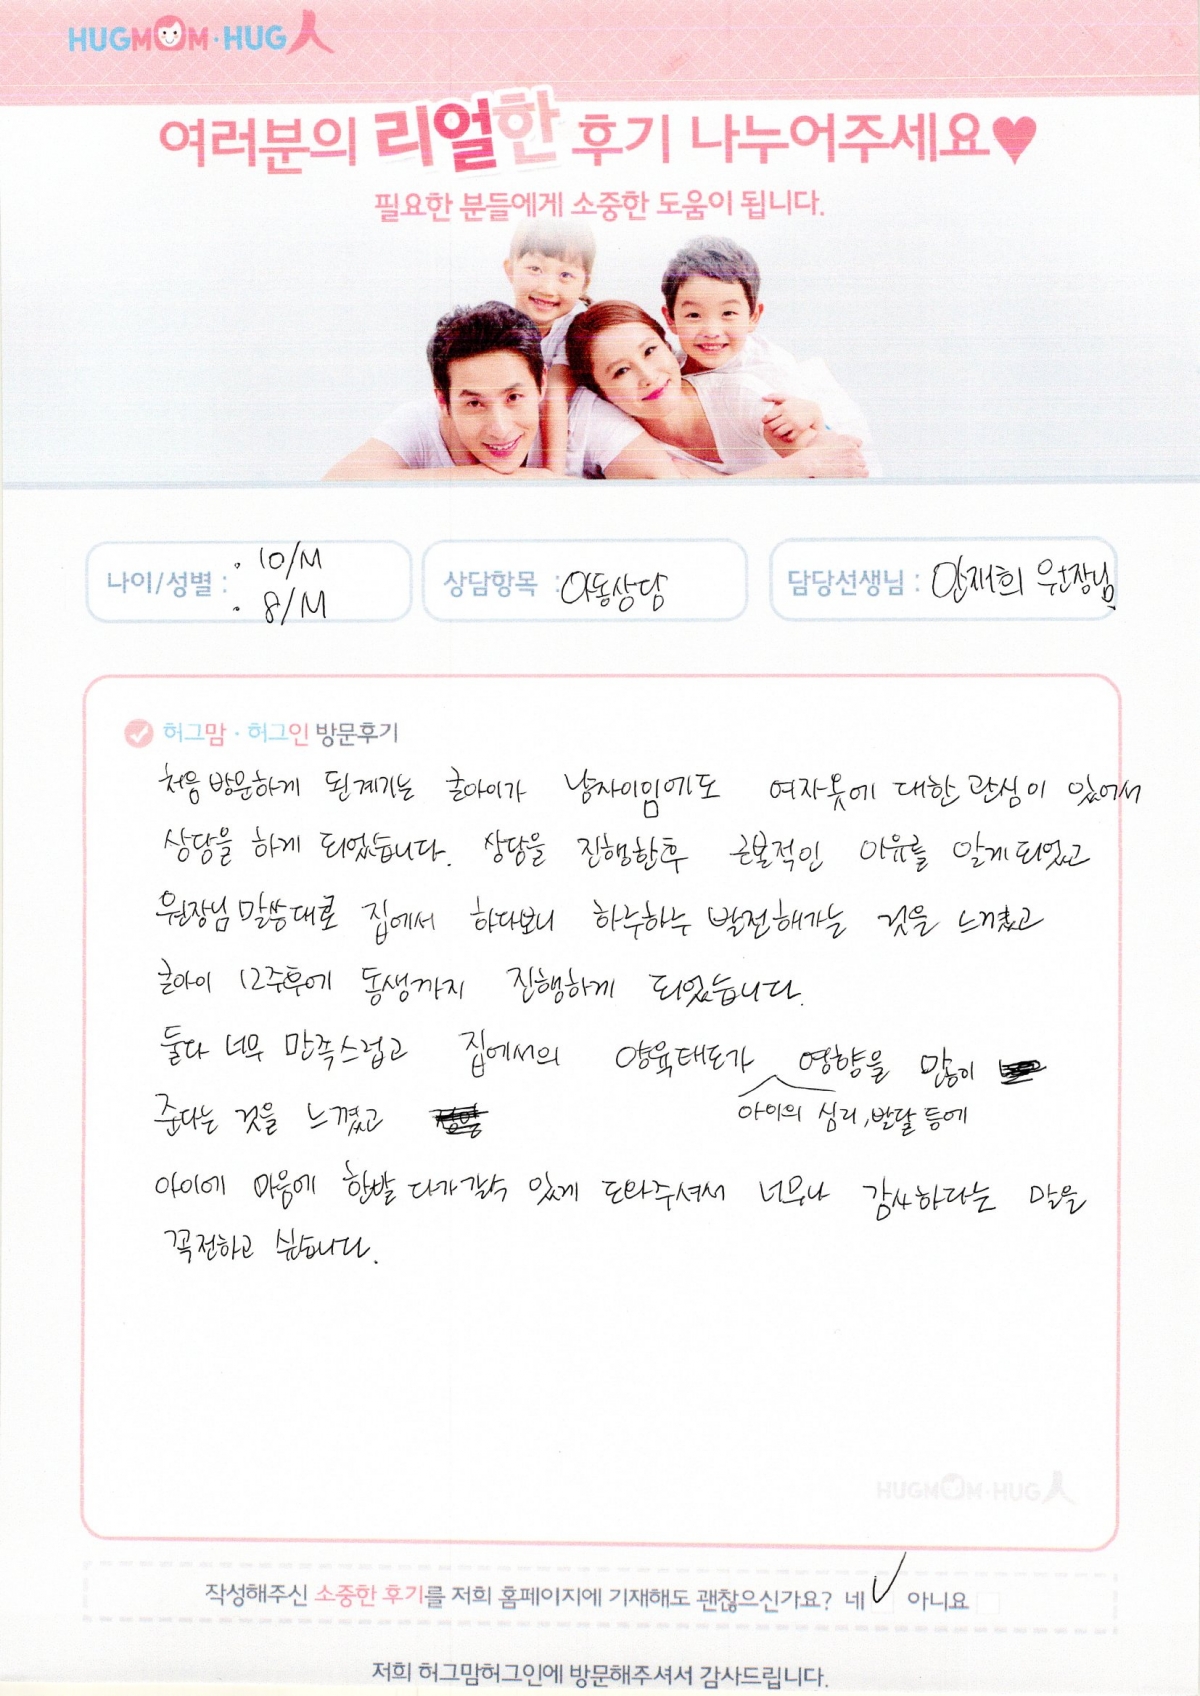 HUGMOM·HUG人
여러분의 리얼한 후기 나누어주세요♥
필요한 분들에게 소중한 도움이 됩니다.
나이/성별 : · 10/M
· 8/M
상담항목 : 아동상담
담당선생님 : 안재희 원장님
허그맘·허그인 방문후기
처음 방문하게 된계기는 큰아이가 남자이임에도 여자옷에 대한 관심이 있어서
상담을 하게 되었습니다. 상담을 진행한후 근본적인 이유를 알게되었고
원장님 말씀대로 집에서 하다보니 하루하루 발전해가는 것을 느끼고
큰아이 12주후에 동생까지 진행하게 되었습니다.
둘다 너무 만족스럽고 집에서의 양육태도가 영향을 많이
아이의 심리, 발달 등에
준다는 것을 느꼈고
아이에 마음에 한발 다가갈수 있게 도와주셔서 너무나 감사하다는 말을
꼭전하고 싶습니다.
HUGMOM·HUG人
작성해주신 소중한 후기를 저희 홈페이지에 기재해도 괜찮으신가요? 네 ✓ 아니요
저희 허그맘허그인에 방문해주셔서 감사드립니다.